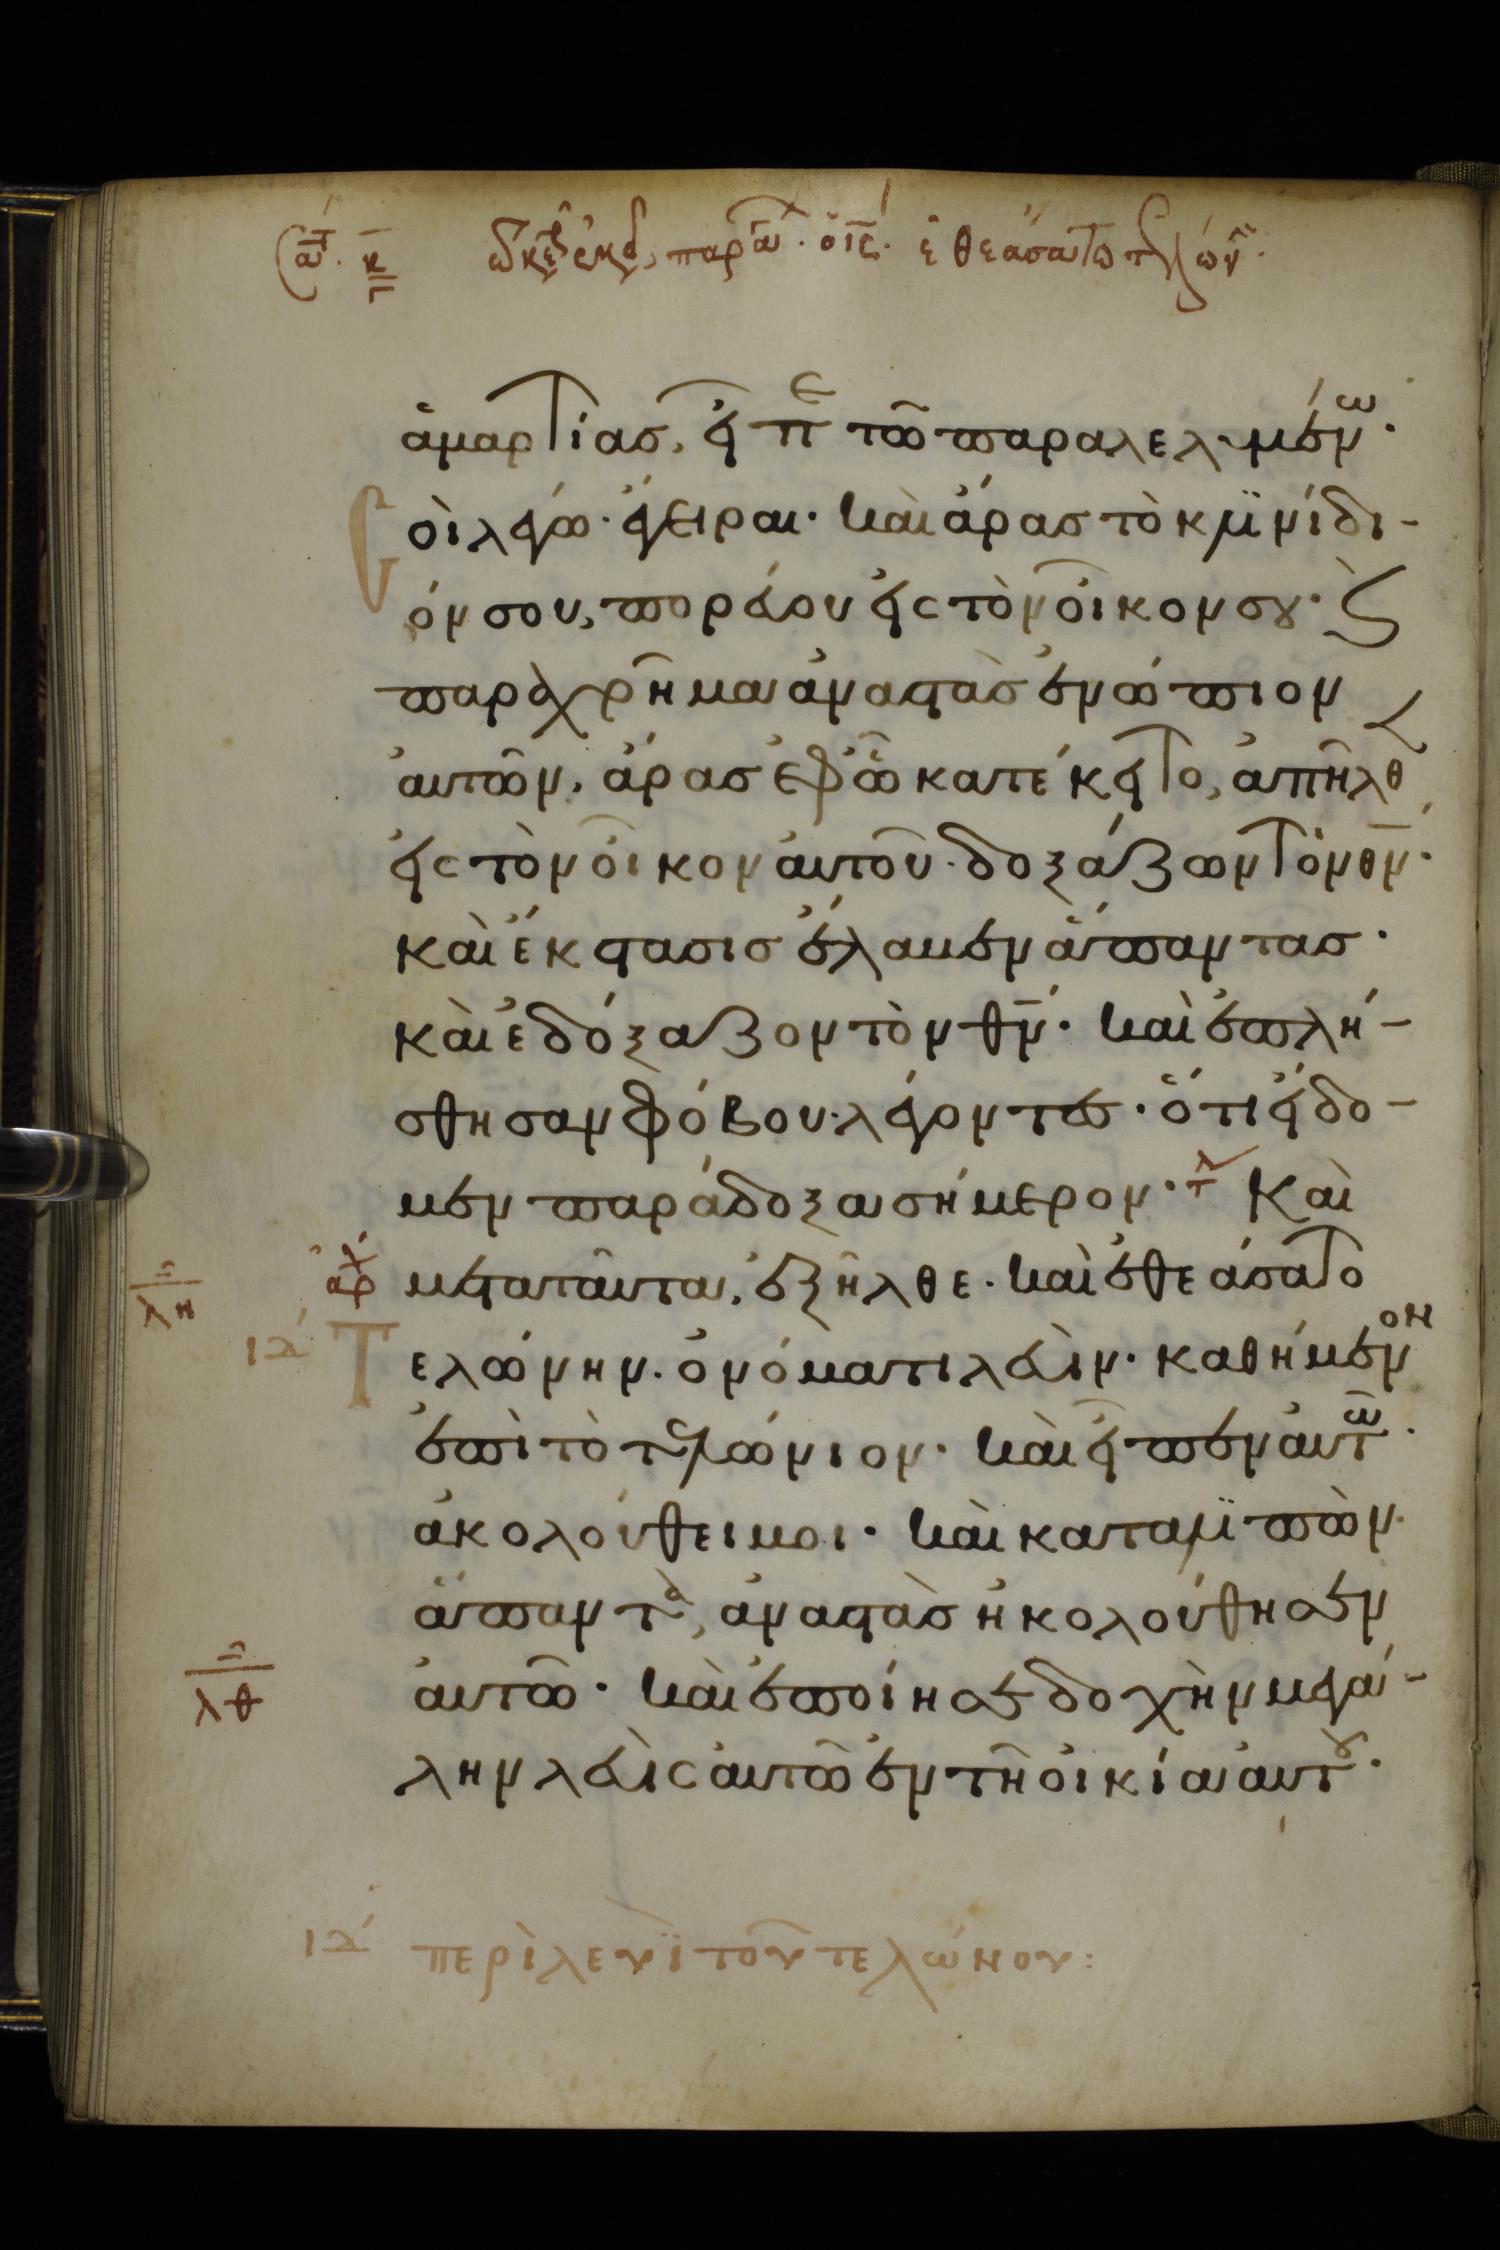 ἁμαρτίας, εἶπε τῶ παραλελυμένω·
Σοὶ λέγω· ἔγειραι· καὶ ἄρας τὸ κλινίδι-
όν σου, πορεύου εἰς τὸν οἶκον σου· καὶ
παραχρῆμα ἀναστὰς ἐνώπιον
αὐτῶν, ἄρας ἐφ' ὧ κατέκειτο, ἀπῆλθε
εἰς τὸν οἶκον αὐτοῦ· δοξάζων τὸν θν·
καὶ ἔκστασις ἔλαβεν ἅπαντας·
καὶ ἐδόξαζον τὸν θν· καὶ ἐπλή-
σθησαν φόβου λέγοντες· ὅτι εἴδο-
μεν παράδοξα σήμερον· τλ Καὶ
αρχ μετὰ ταῦτα, ἐξῆλθε· καὶ ἐθεάσατο
λη
ιδ Τελώνην· ὀνόματι λευὶν· καθήμενον
ἐπὶ τὸ τελώνιον· καὶ εἶπεν αὐτῶ·
ἀκολούθει μοι· καὶ καταλιπὼν
ἅπαντα, ἀναστὰς ἠκολούθησεν
αὐτῶ· καὶ ἐποίησε δοχὴν μεγά-
λθ
λην λευὶς αὐτῶ ἐν τῆ οἰκία αὐτοῦ·
ιδ περὶ λευὶ τοῦ τελώνου: